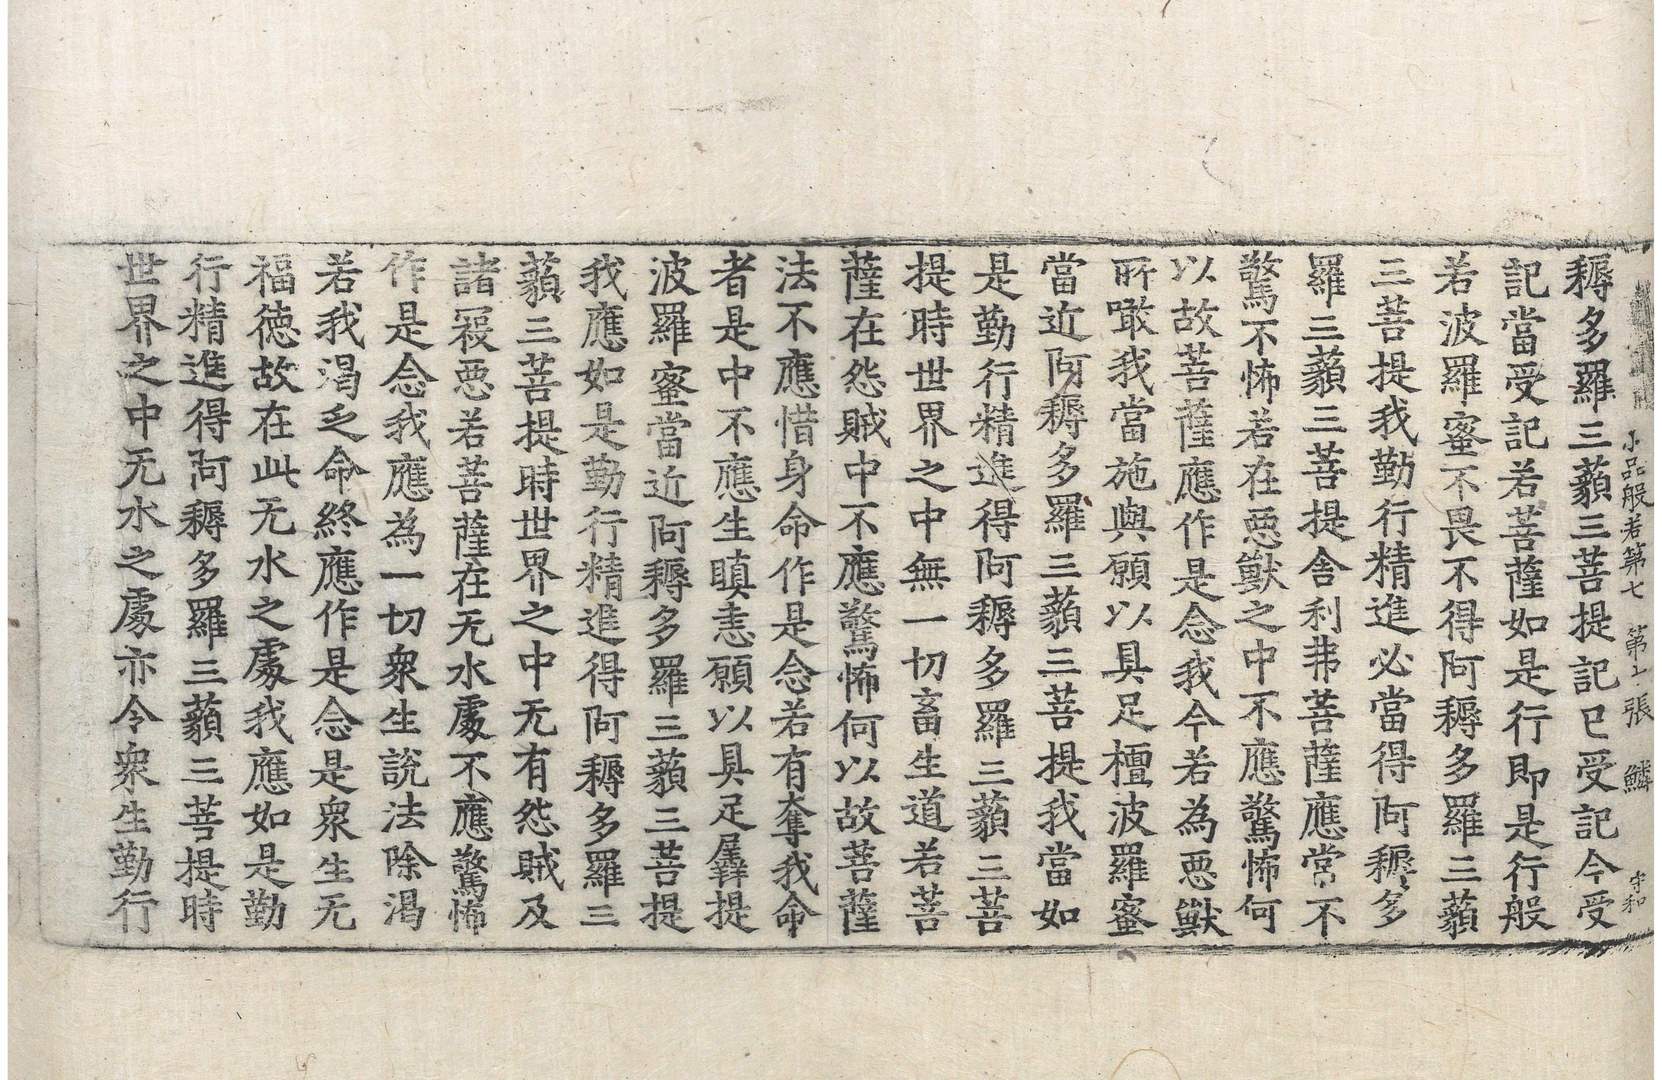 小品般若第七　第十張　鱗　守和
耨多羅三藐三菩提記已受記今受
記當受記若菩薩如是行即是行般
若波羅蜜不畏不得阿耨多羅三藐
三菩提我勤行精進必當得阿耨多
羅三藐三菩提舍利弗菩薩應常不
驚不怖若在惡獸之中不應驚怖何
以故菩薩應作是念我今若為惡獸
所噉我當施與願以具足檀波羅蜜
當近阿耨多羅三藐三菩提我當如
是勤行精進得阿耨多羅三藐三菩
提時世界之中無一切畜生道若菩
薩在怨賊中不應驚怖何以故菩薩
法不應惜身命作是念若有奪我命
者是中不應生瞋恚願以具足羼提
波羅蜜當近阿耨多羅三藐三菩提
我應如是勤行精進得阿耨多羅三
藐三菩提時世界之中无有怨賊及
諸寇惡若菩薩在无水處不應驚怖
作是念我應為一切衆生說法除渴
若我渴乏命終應作是念是衆生无
福德故在此无水之處我應如是勤
行精進得阿耨多羅三藐三菩提時
世界之中无水之處亦令衆生勤行